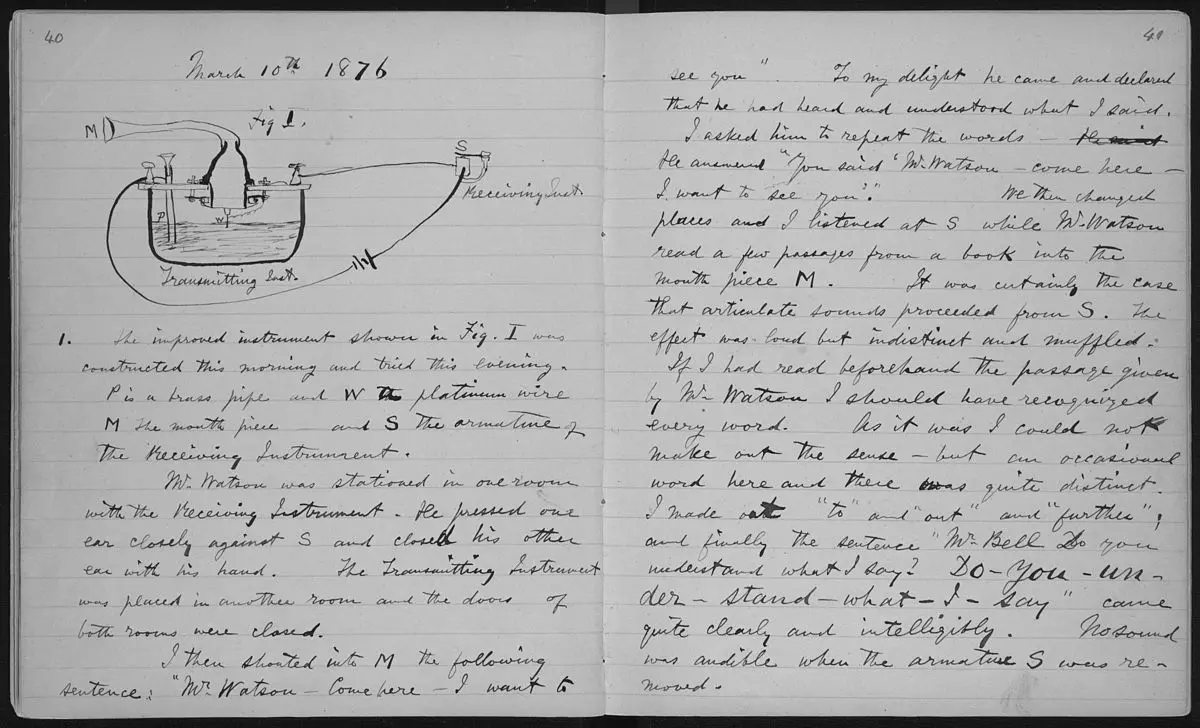 40
March 10th 1876
Fig I.
M
S
Receiving Inst.
P
W
Transmitting Inst.
1. The improved instrument shown in Fig. I was
constructed this morning and tried this evening.
P is a brass pipe and W the platinum wire
M the mouth piece and S the armature of
the Receiving Instrument.
Mr. Watson was stationed in one room
with the Receiving Instrument. He pressed one
ear closely against S and closed his other
ear with his hand. The Transmitting Instrument
was placed in another room and the doors of
both rooms were closed.
I then shouted into M the following
sentence: "Mr. Watson – Come here – I want to
41
see you". To my delight he came and declared
that he had heard and understood what I said.
I asked him to repeat the words – He said
He answered "You said 'Mr. Watson – come here –
I want to see you'." We then changed
places and I listened at S while Mr. Watson
read a few passages from a book into the
mouth piece M. It was certainly the case
that articulate sounds proceeded from S. The
effect was loud but indistinct and muffled.
If I had read beforehand the passage given
by Mr. Watson I should have recognized
every word. As it was I could not
make out the sense – but an occasional
word here and there was quite distinct.
I made out "to" and "out" and "further";
and finally the sentence "Mr. Bell Do you
understand what I say? Do – you – un –
der – stand – what – I – say" came
quite clearly and intelligibly. No sound
was audible when the armature S was re –
moved.